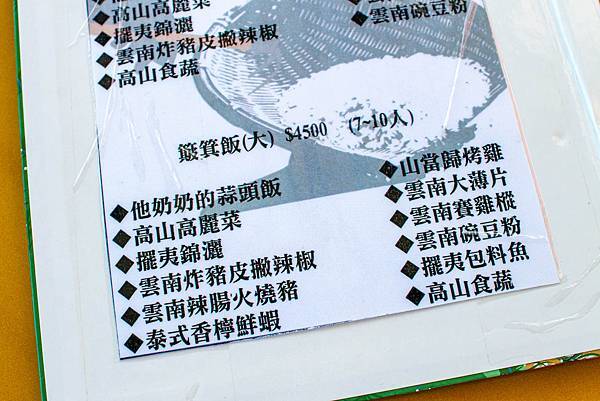 高山高麗菜
擺夷錦灑
雲南炸豬皮撇辣椒
高山食蔬
雲南碗豆粉
簸箕飯(大) $4500 (7~10人)
他奶奶的蒜頭飯
高山高麗菜
擺夷錦灑
雲南炸豬皮撇辣椒
雲南辣腸火燒豬
泰式香檸鮮蝦
山當歸烤雞
雲南大薄片
雲南賽雞樅
雲南碗豆粉
擺夷包料魚
高山食蔬